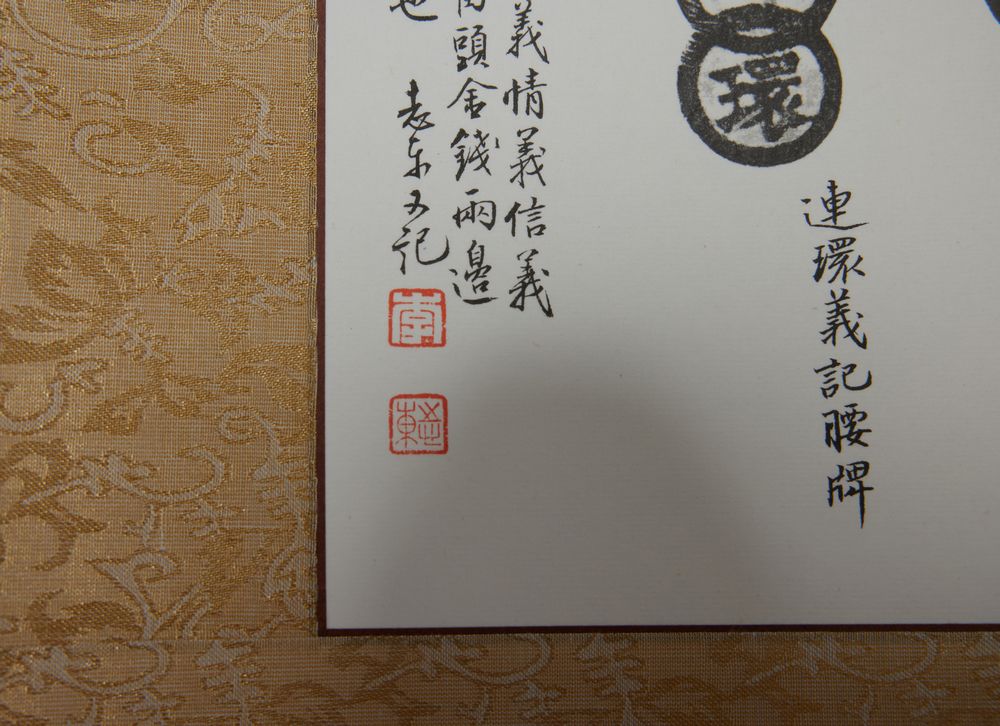 環
連環義記腰牌
義情義信義
頭舍錢兩邊
也
志東又記